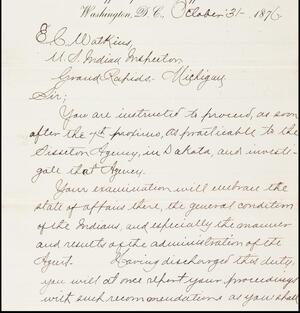 Washington, D.C., October 31- 1876
E. C. Watkins,
U.S. Indian Inspector
Grand Rapids- Michigan,
Sir;
You are instructed to proceed, as soon
after the 7th proximo, as practicable to the
Sisseton Agency, in Dakota, and investi-
gate that Agency.
Your examination will embrace the
state of affairs there, the general condition
of the Indians, and especially the manner
and results of the administration of the
Agent. Having discharged this duty,
you will at once report your proceedings
with such recommendations as you shall